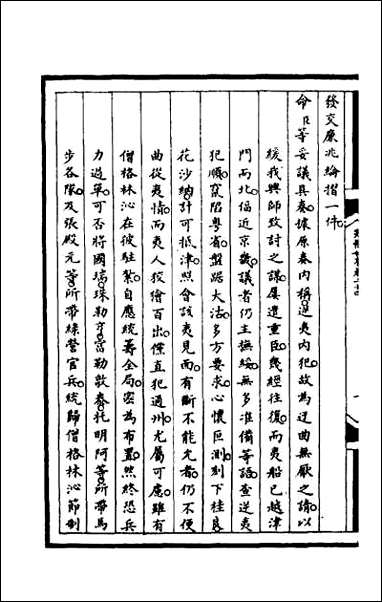 發交廉兆綸摺一件
命臣等妥議具奏據原奏內稱逆夷內犯故為迂曲無厭之請以
緩我興師致討之謀屢遣重臣幾經往復而夷船已越津
門而北偪近京畿議者仍主撫綏無多准備等語查逆夷
犯順窠陷粵省盤踞大沽多方要求心懷叵測刻下桂良
花沙納計可抵津照會該夷見面有斷不能允者仍不便
曲從夷情而夷人狡獪百出僕直犯通州尤屬可慮雖有
僧格林沁在彼駐紮自應統籌全局密為布置然終恐兵
力過單可否將國瑞珠勒亨富勒敦泰托明阿等所帶馬
步各隊及張殿元等所帶綠營官兵統歸僧格林沁節制